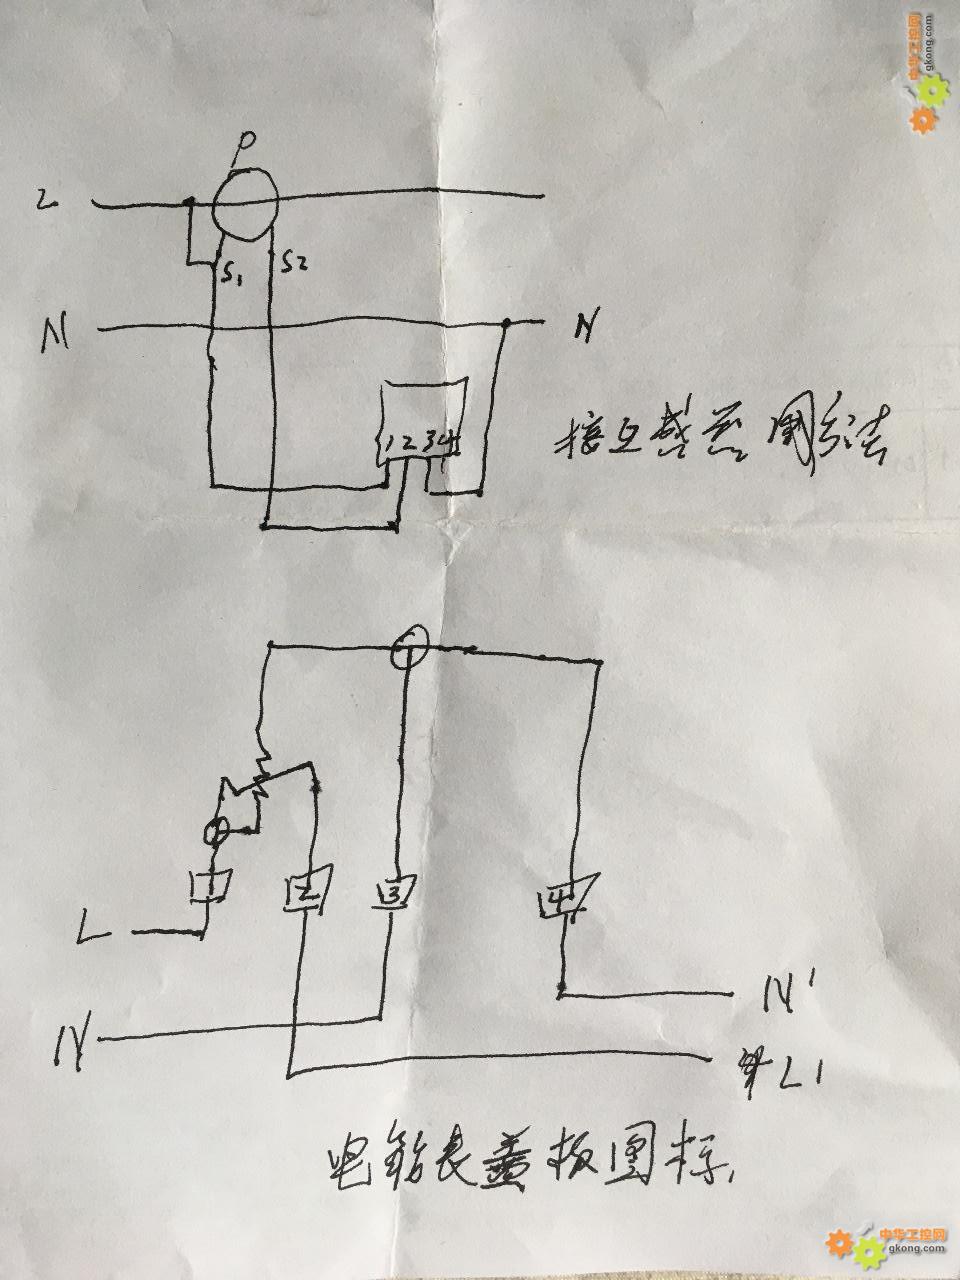 中华工控网
gkong.com
P
L
S1 S2
N N
1 2 3 4
接互感器圈方法
1 2 3 4
L
N'
N
L1
电能表盖板图标.
中华工控网
gkong.com